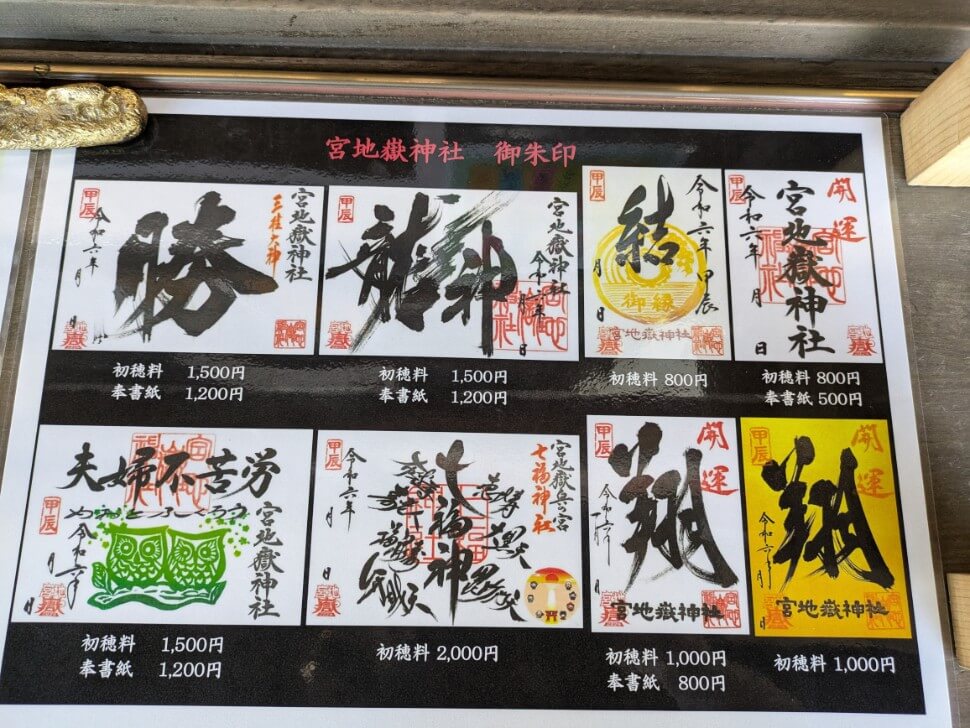 宮地嶽神社 御朱印
甲辰
令和六年
月
日
勝
三柱大神
宮地嶽神社
初穂料 1,500円
奉書紙 1,200円
龍神
宮地嶽神社
令和六年
月
日
初穂料 1,500円
奉書紙 1,200円
甲辰
結
御縁
令和六年 甲辰
月
日
宮地嶽神社
初穂料 800円
甲辰
開運
宮地嶽神社
令和六年
月
日
初穂料 800円
奉書紙 500円
夫婦不苦労
甲辰
令和六年
月
日
宮地嶽神社
初穂料 1,500円
奉書紙 1,200円
甲辰
令和六年
月
日
七福神
宮地嶽兵の宮
七福神社
初穂料 2,000円
甲辰
開運
翔
令和六年
月
日
宮地嶽神社
初穂料 1,000円
奉書紙 800円
甲辰
開運
翔
令和六年
月
日
宮地嶽神社
初穂料 1,000円